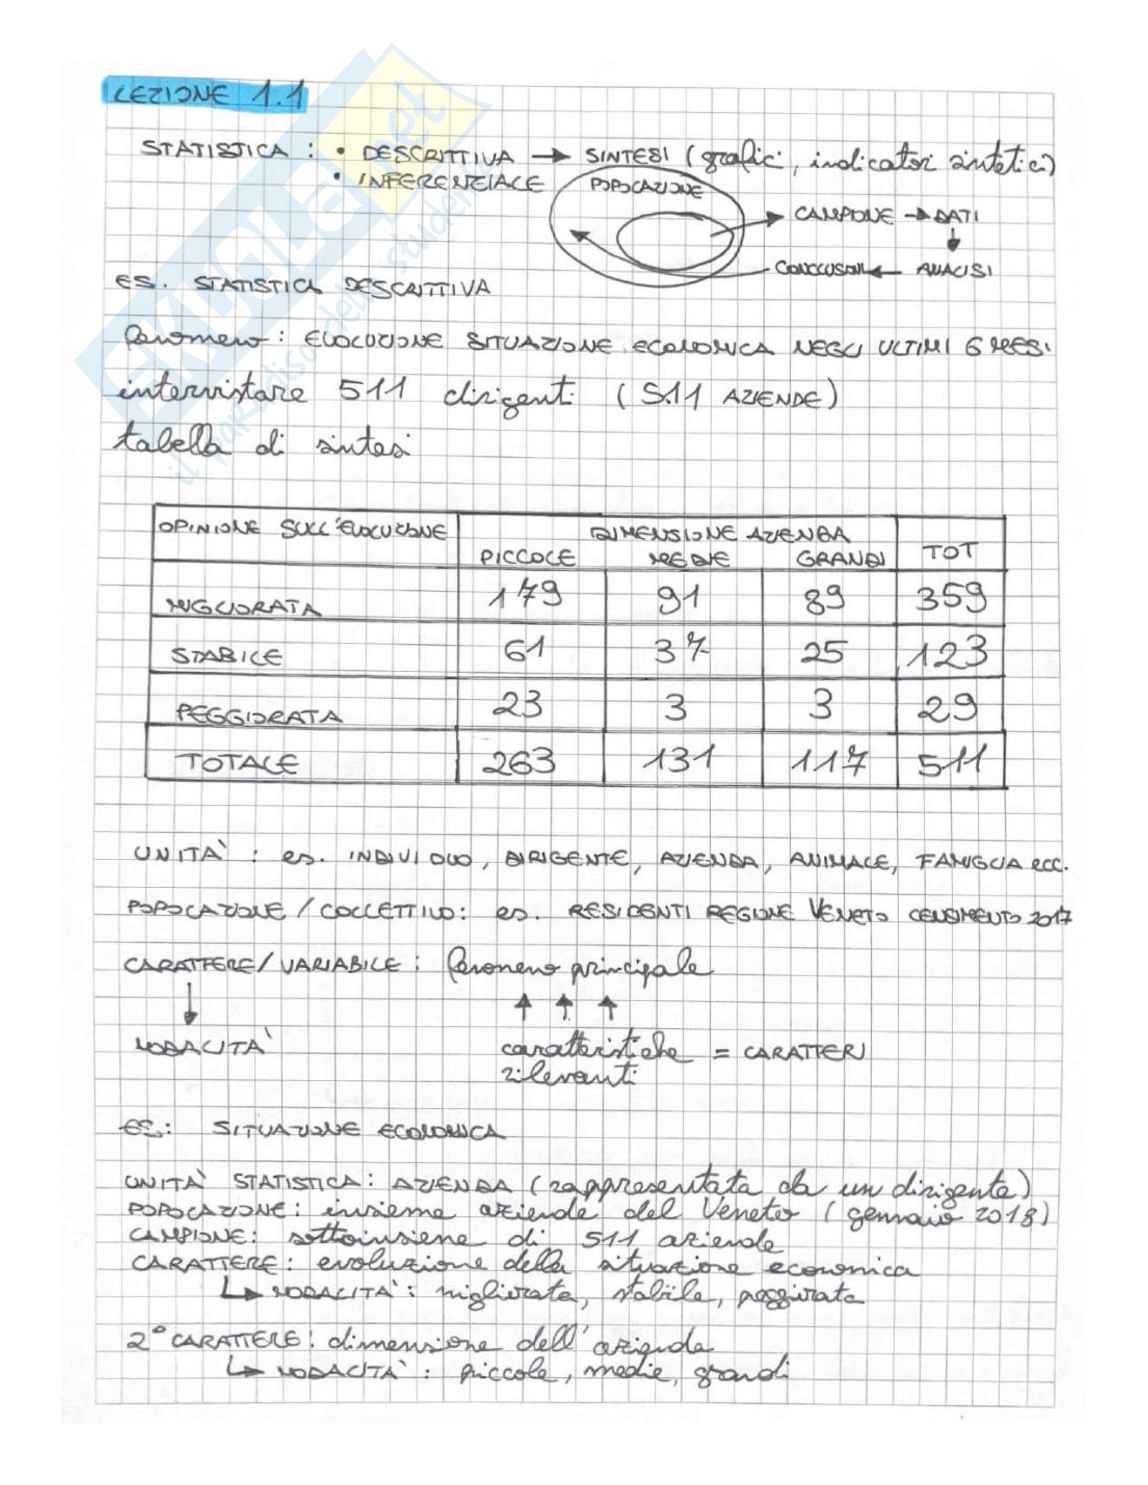 LEZIONE 1.1
STATISTICA : • DESCRITTIVA → SINTESI (grafici, indicatori sintetici)
• INFERENZIALE
POPOLAZIONE
CAMPIONE → DATI
CONCLUSIONI ← ANALISI
es. STATISTICA DESCRITTIVA
fenomeno : EVOLUZIONE SITUAZIONE ECONOMICA NEGLI ULTIMI 6 MESI
intervistare 511 dirigenti (511 AZIENDE)
tabella di sintesi
OPINIONE SULL'EVOLUZIONE DIMENSIONE AZIENDA
PICCOLE MEDIE GRANDI TOT
MIGLIORATA 179 91 89 359
STABILE 61 37 25 123
PEGGIORATA 23 3 3 29
TOTALE 263 131 117 511
UNITÀ : es. INDIVIDUO, DIRIGENTE, AZIENDA, ANIMALE, FAMIGLIA ecc.
POPOLAZIONE / COLLETTIVO : es. RESIDENTI REGIONE VENETO CENSIMENTO 2017
CARATTERE / VARIABILE : fenomeno principale
↓ ↑ ↑ ↑
MODALITÀ caratteristiche = CARATTERI
rilevanti
es: SITUAZIONE ECONOMICA
UNITÀ STATISTICA : AZIENDA (rappresentata da un dirigente)
POPOLAZIONE : insieme aziende del Veneto (gennaio 2018)
CAMPIONE : sottoinsieme di 511 aziende
CARATTERE : evoluzione della situazione economica
↳ MODALITÀ : migliorata, stabile, peggiorata
2° CARATTERE : dimensione dell'azienda
↳ MODALITÀ : piccole, medie, grandi
SKUOLA.net
il paradiso dello studente